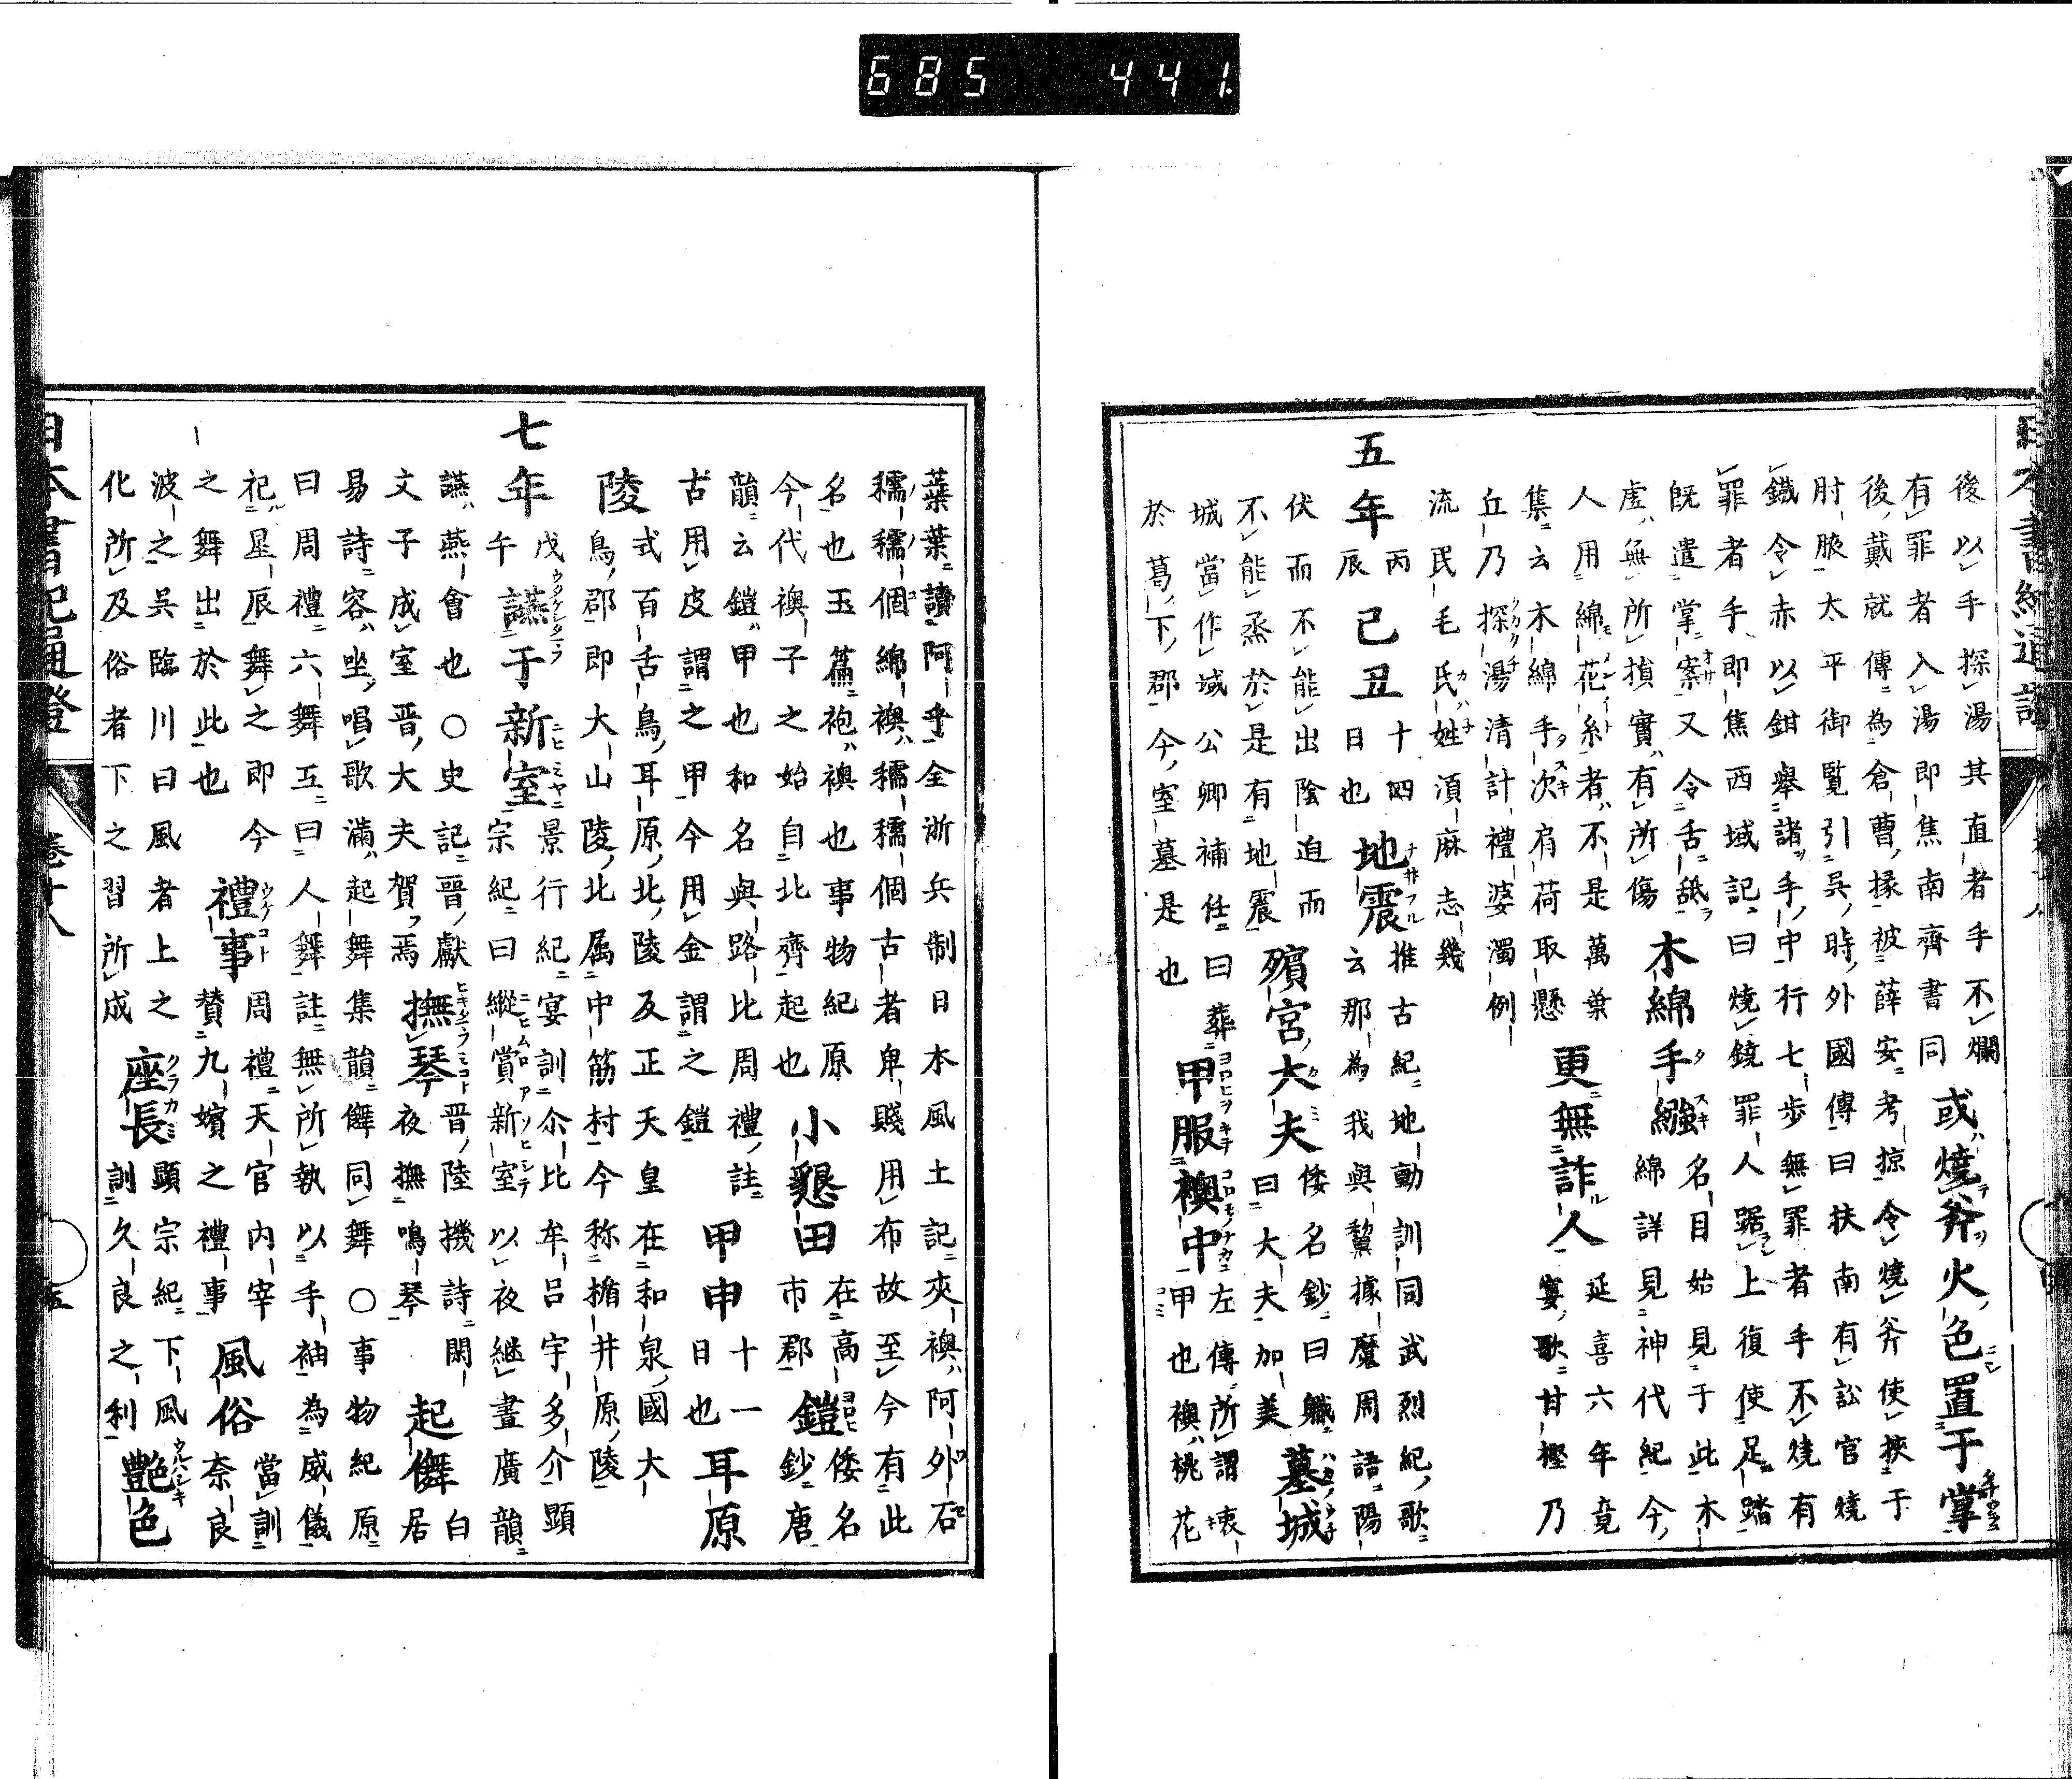 後以手探湯其直者手不爛
有罪者入湯即焦南齊書同
或燒斧火色置于掌
後戴就傳為倉曹掾被薛安考掠令燒斧使挾于
肘腋太平御覽引吳時外國傳曰扶南有訟官燒
鐵令赤以鉗舉諸手中行七步無罪者手不燒有
罪者手即焦西域記曰燒鏡罪人踞上復使足踏
既遣掌案又令舌舐
虛無所損實有所傷
木綿手繦
名目始見于此木
綿詳見神代紀今
人用綿花糸者不是萬葉
集云木綿手次肩荷取懸
更無詐人
延喜六年竟
宴歌甘樫乃
丘乃探湯清計禮婆濁例
流民毛氏姓湏麻志幾
五年
丙
辰
己丑
十四
日也
地震
推古紀地動訓同武烈紀歌
云那為我與釐據魔周語陽
伏而不能出陰迫而
不能烝於是有地震
殯宮大夫
倭名鈔曰職
曰大夫加美
墓城
城當作域公卿補任曰葬
於葛下郡今室墓是也
甲服襖中
左傳所謂衷
甲也襖桃花
蘂葉讀阿乎全浙兵制日本風土記夾襖阿外石
穤穤個綿襖穤穤個古者卑賤用布故至今有此
名也玉篇袍襖也事物紀原
今代襖子之始自北齊起也
小墾田
在高
市郡
鎧
倭名
鈔唐
韻云鎧甲也和名與路比周禮註
古用皮謂之甲今用金謂之鎧
甲申
十一
日也
耳原
陵
式百舌鳥耳原北陵反正天皇在和泉國大
鳥郡即大山陵北属中筋村今称楯井原陵
七年
戊
午
讌于新室
景行紀宴訓尒比牟呂宇多介顯
宗紀曰縱賞新室以夜継晝廣韻
讌燕會也○史記晋獻
文子成室晋大夫賀焉
撫琴
晋陸機詩閑
夜撫鳴琴
起儛
白
居
易詩容坐唱歌滿起舞集韻儛同舞○事物紀原
曰周禮六舞五曰人舞註無所執以手袖為威儀
祀星辰舞之即今
之舞出於此也
禮事
周禮天官内宰
賛九嬪之禮事
風俗
當訓
奈良
波之吳臨川曰風者上之
化所及俗者下之習所成
座長
顯宗紀下風
訓久良之利
艶色
日本書紀通證
685 441.